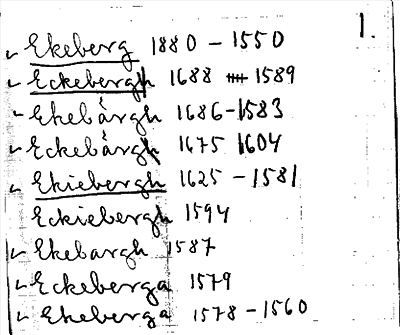 1.
Ekeberg 1880 - 1550
Eckebergh 1688 1589
Ekebårgh 1686-1583
Eckebårgh 1675 1604
Ekiebergh 1625 - 1581
Eckiebergh 1594
Ekebargh 1587
Eckeberga 1579
Ekeberga 1578 - 1560